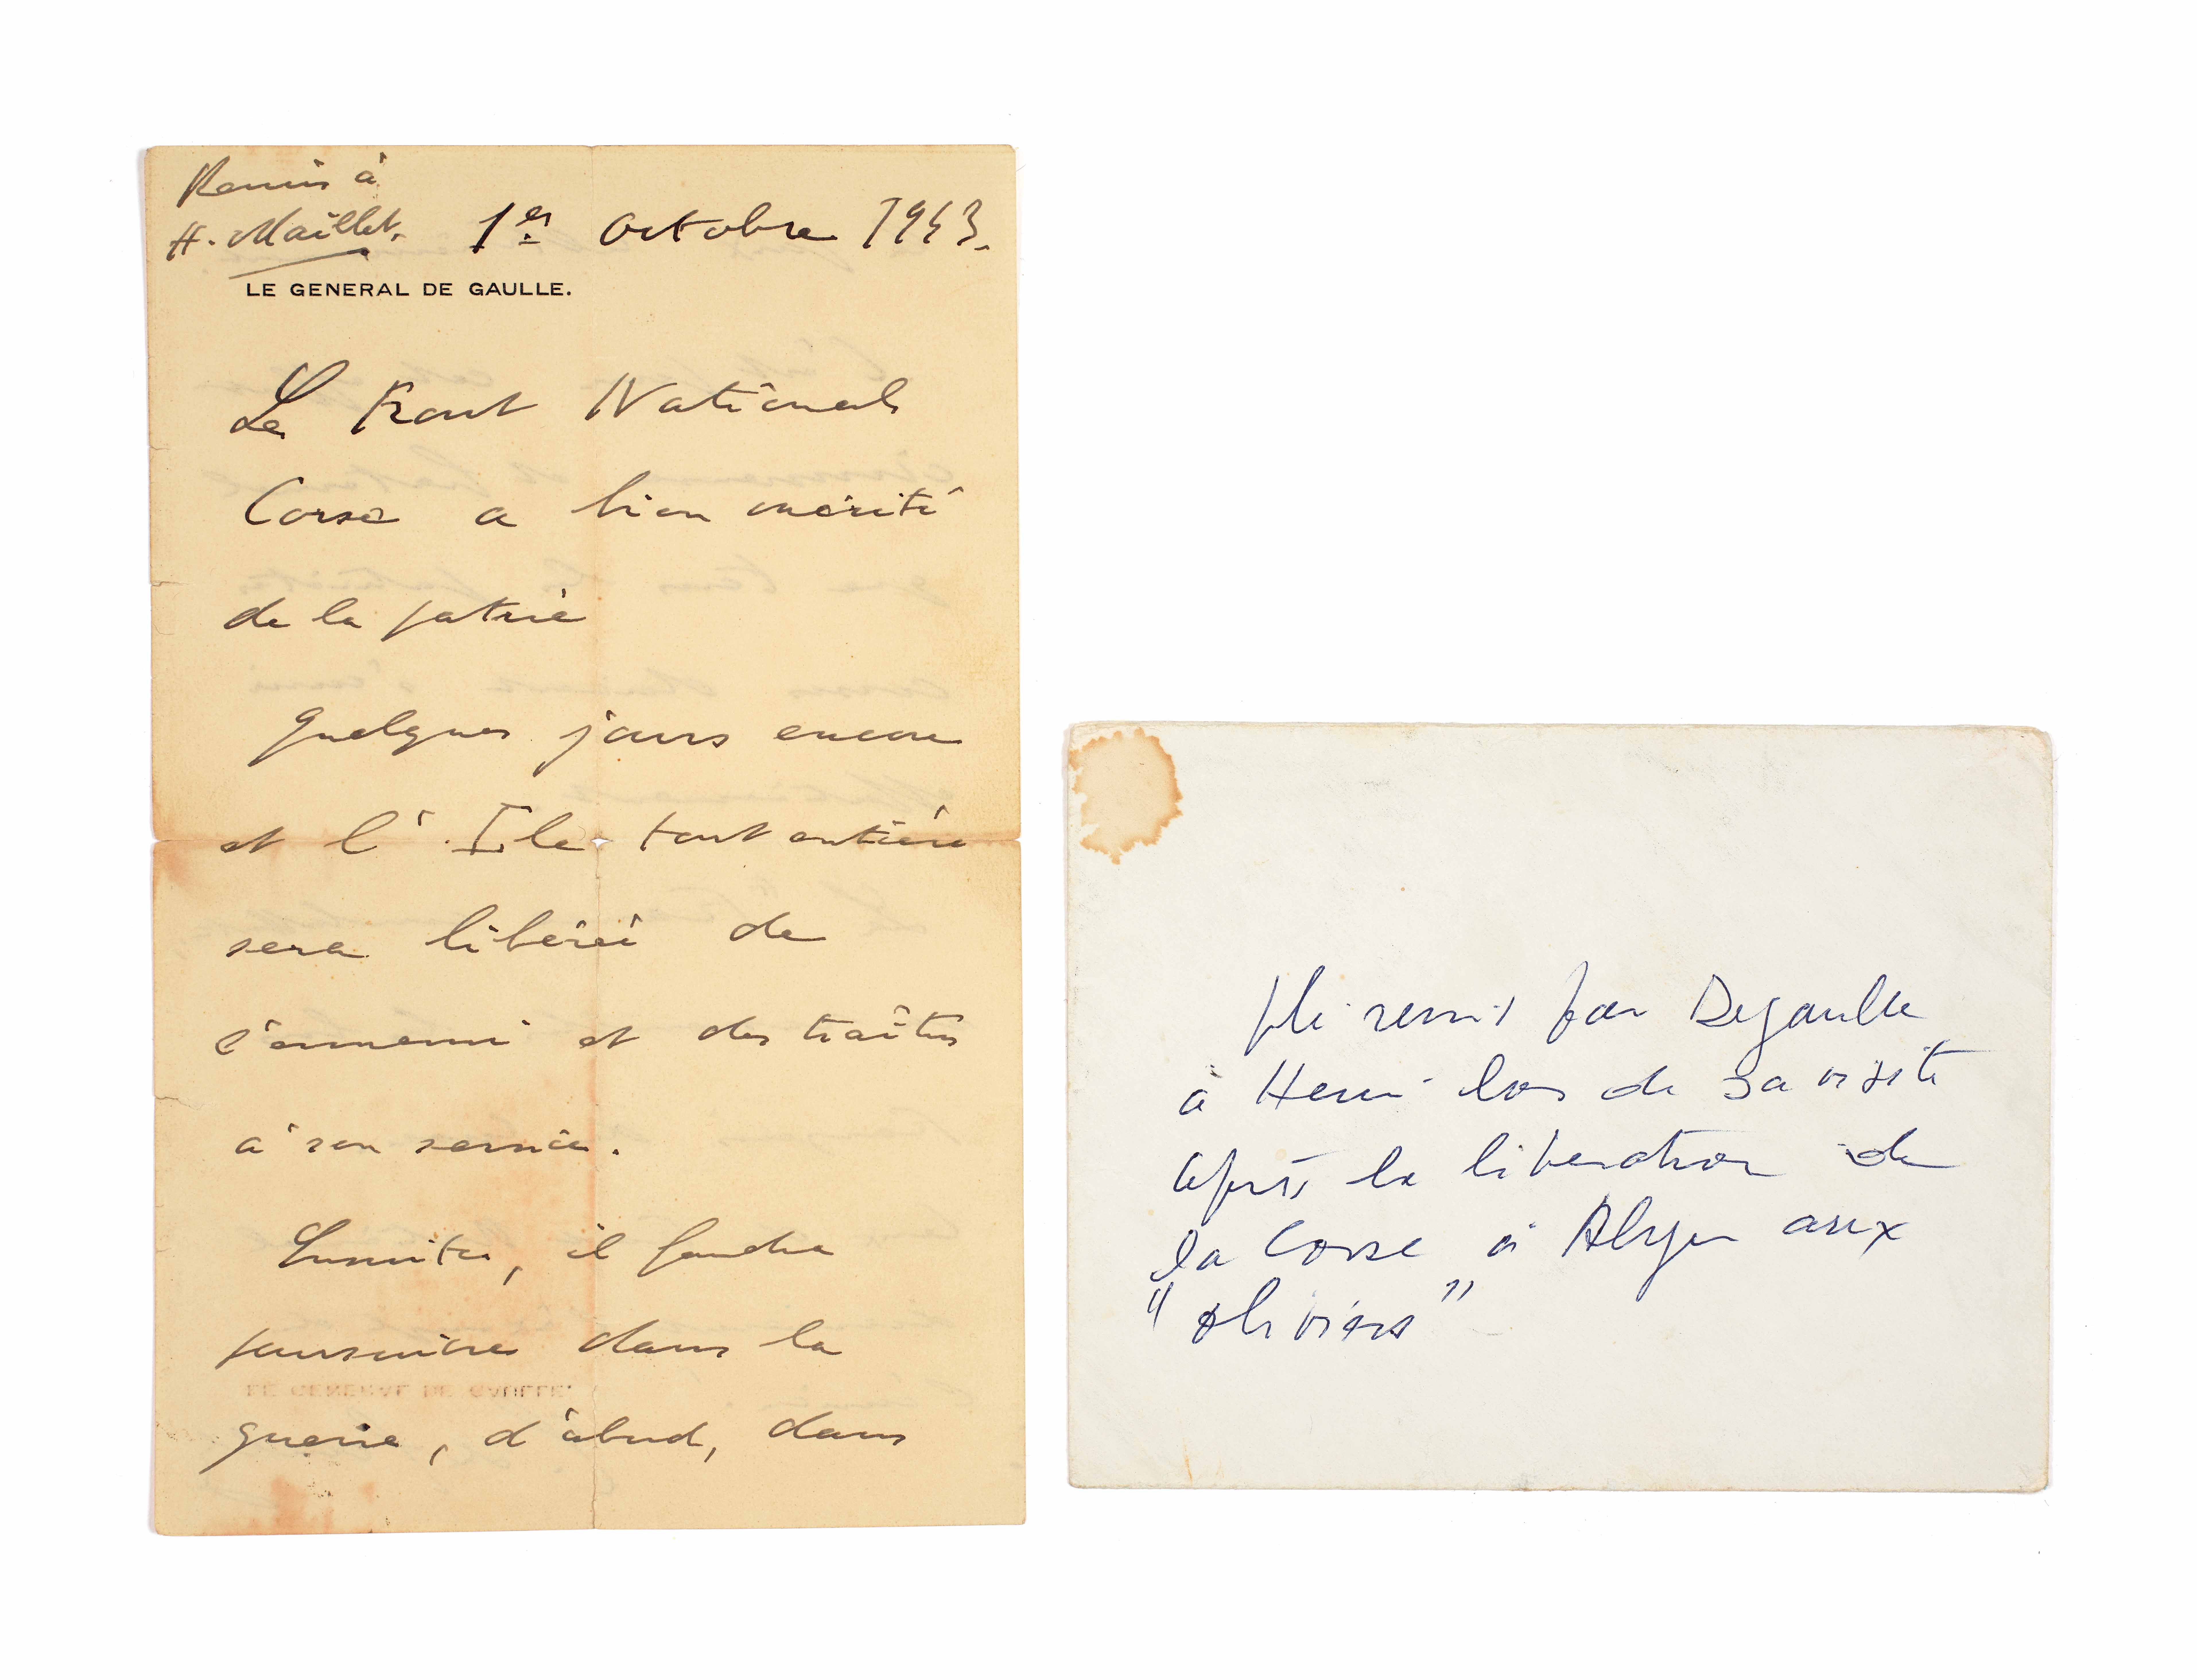 Remis à
H. Maillet.
1er Octobre 1943.
LE GENERAL DE GAULLE.
Le Front National
Corse a bien mérité
de la patrie
Quelques jours encore
et l'Ile tout entière
sera libérée de
l'ennemi et des traîtres
à son service.
Ensuite, il faudra
poursuivre dans la
guerre, d'abord, dans
Pli remis par Degaulle
à Henri lors de sa visite
après la libération de
la Corse à Alger aux
"oliviers"